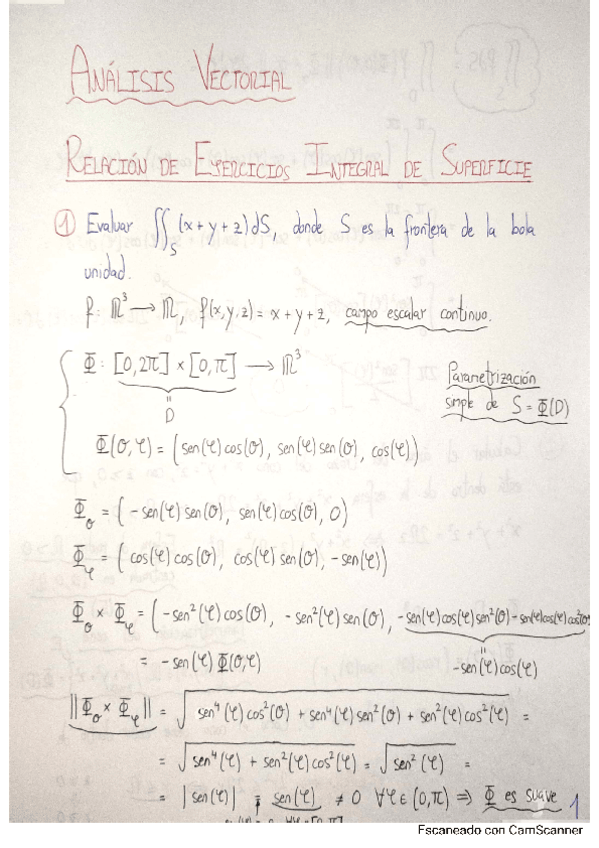 ANÁLISIS VECTORIAL
RELACIÓN DE EJERCICIOS INTEGRAL DE SUPERFICIE
① Evaluar ∬_S (x + y + z) dS, donde S es la frontera de la bola
unidad.
f: ℝ³ → ℝ, f(x, y, z) = x + y + z, campo escalar continuo.
Φ: [0, 2π] × [0, π] → ℝ³
D
Parametrización
simple de S = Φ(D)
Φ(θ, φ) = (sen(φ) cos(θ), sen(φ) sen(θ), cos(φ))
Φ_θ = (-sen(φ) sen(θ), sen(φ) cos(θ), 0)
Φ_φ = (cos(φ) cos(θ), cos(φ) sen(θ), -sen(φ))
Φ_θ × Φ_φ = (-sen²(φ) cos(θ), -sen²(φ) sen(θ), -sen(φ) cos(φ) sen²(θ) - sen(φ) cos(φ) cos²(θ)
= -sen(φ) Φ(θ, φ)
-sen(φ) cos(φ)
||Φ_θ × Φ_φ|| = √(sen⁴(φ) cos²(θ) + sen⁴(φ) sen²(θ) + sen²(φ) cos²(φ)) =
= √(sen⁴(φ) + sen²(φ) cos²(φ)) = √(sen²(φ)) =
= |sen(φ)| = sen(φ) ≠ 0 ∀φ ∈ (0, π) ⟹ Φ es suave
1
Escaneado con CamScanner